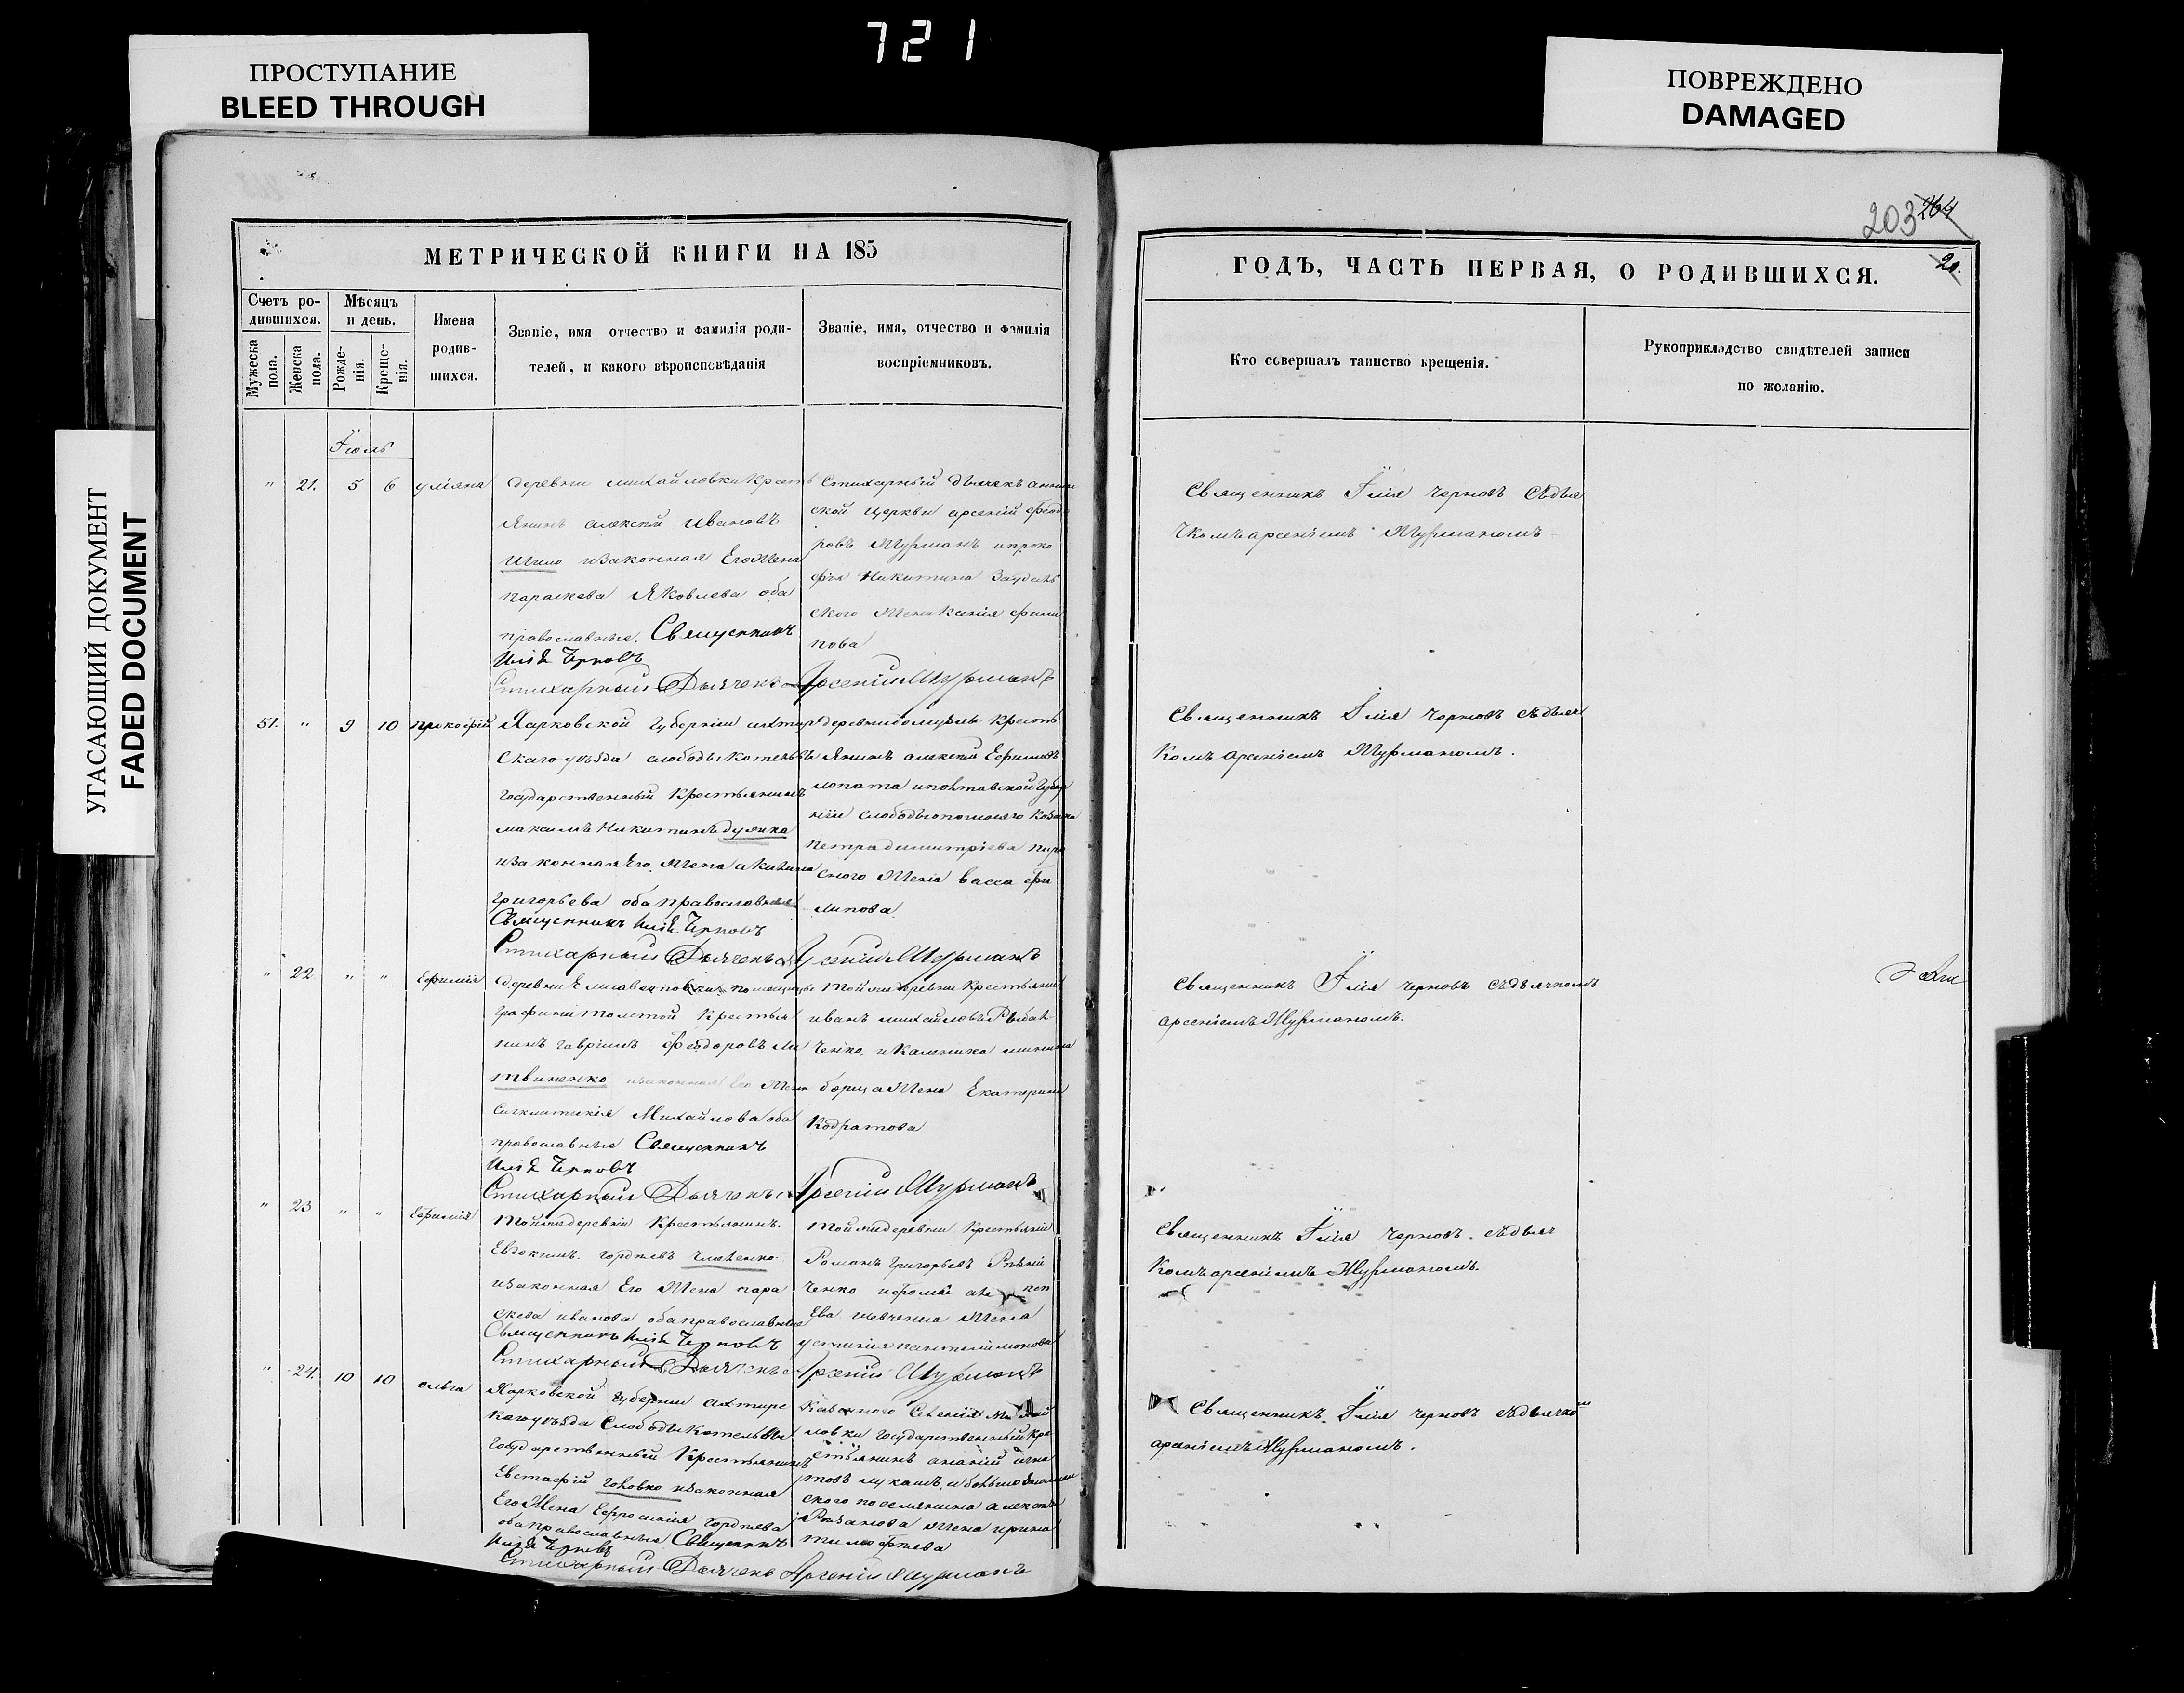 721
ПРОСТУПАНИЕ
BLEED THROUGH
ПОВРЕЖДЕНО
DAMAGED
УГАСАЮЩИЙ ДОКУМЕНТ
FADED DOCUMENT
203 264
20.
МЕТРИЧЕСКОЙ КНИГИ НА 185
ГОДЪ, ЧАСТЬ ПЕРВАЯ, О РОДИВШИХСЯ.
Счетъ ро-
дившихся.
Мужеска
пола.
Женска
пола.
Мѣсяцъ
и день.
Рожде-
нія.
Креще-
нія.
Имена
родив-
шихся.
Званіе, имя отчество и фамилія роди-
телей, и какого вѣроисповѣданія
Званіе, имя, отчество и фамилія
воспріемниковъ.
Кто совершалъ таинство крещенія.
Рукоприкладство свидѣтелей записи
по желанію.
Іюль
" 21. 5 6 уліяна
деревни михайловки Кресть
янинъ алексѣй Ивановъ
Шило изаконная Его Жена
параскева Яковлева оба
православные. Священникъ
Илія Черновъ
Стихарный Дьячекъ Арсеній Мурманъ
ской церкви арсеній феодо
ровъ Мурманъ ипроко
фія Никитина
ского Жена Ксенія фили
пова
Священникъ Ілія Черновъ сѣдья
Чкомъ арсеніемъ Мурманомъ
51. " 9 10 Прокофій
Харковской губерніи ахтыр
скаго уѣзда слободы Котельвы
государственный Крестьянинъ
максимъ Никитинъ
изаконная Его Жена акилина
григорьева оба православные
Священникъ Илія Черновъ
Стихарный Дьячекъ Арсеній Мурманъ
янинъ алексѣй Ефимовъ
лопата иполтавской губер
петра димитріева
ского Жена васса фи
липова
Священникъ Ілія Черновъ сѣдьяч
Комъ Арсеніемъ Мурманомъ.
" 22 " " Ефимія
деревни Елисаветовки помещицы
графини толстой Крестья
нинъ гавріилъ Феодоровъ Ли
твиненко изаконная Его Жена
Синклитикія Михайлова оба
православные Священникъ
Илія Черновъ
Стихарный Дьячекъ Арсеній Мурманъ
Той жи деревни Крестьяни
иванъ михайловъ Рыбал
ченко и Калиника
борца Жена Екатерина
Кодратова
Священникъ Ілія Черновъ сѣдьячкомъ
арсеніемъ Мурманомъ.
" 23 " " Ефимія
Той жи деревни Крестьянинъ.
Евдокимъ гордѣевъ
изаконная Его Жена пара
скева иванова оба православные
Священникъ Илія Черновъ
Стихарный Дьячекъ Арсеній Мурманъ
Той жи деревни Крестьянин
Романъ Григорьевъ Рѣзни
ченко
Ева шевченка Жена
устинія пантелиімонова
Священникъ Ілія Черновъ. сѣдьяч
Комъ арсеніемъ Мурманомъ.
" 24. 10 10 ольга
Харковской губерніи ахтирс
каго уѣзда Слободы Котельвы
государственный Крестьянинъ
Евстафій головко изаконная
Его Жена Ефросинія гордѣева
оба православные Священникъ
Илія Черновъ
Стихарный Дьячекъ Арсеній Мурманъ
ловки государственный Кре
стьянинъ ананій игна
товъ
ского поселянина
Рязанова Жена ирина
тимофѣева
Священникъ. Ілія Черновъ сѣдьячком
арсеніемъ Мурманомъ.